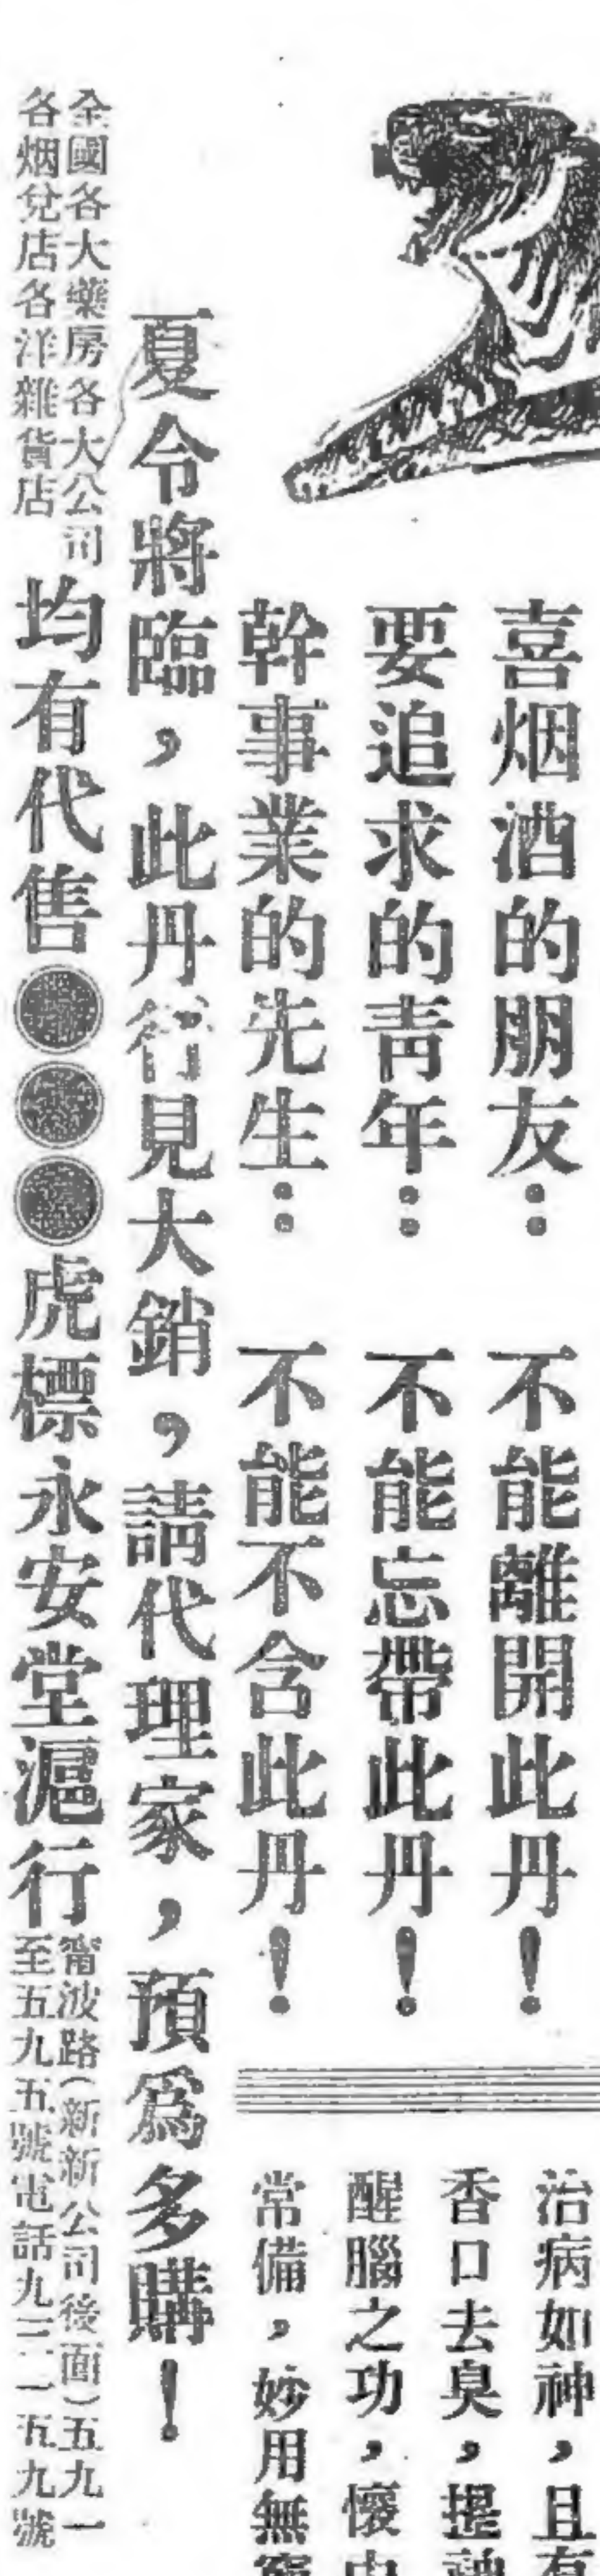 喜烟酒的朋友：　不能離開此丹！
要追求的青年：　不能忘帶此丹！
幹事業的先生：　不能不含此丹！
治病如神，且有
香口去臭，提神
醒腦之功，懷中
常備，妙用無窮
夏令將臨，此丹行見大銷，請代理家，預爲多購！
全國各大藥房各大公司
各烟兌店各洋雜貨店
均有代售
虎標永安堂滬行
甯波路（新新公司後面）五九一
至五九五號電話九二一五九號